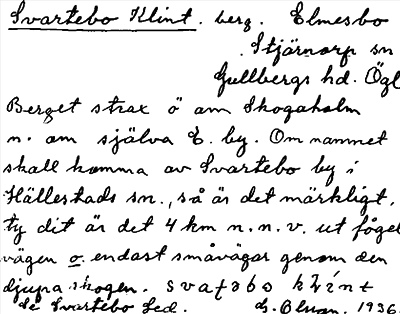 Svartebo Klint. berg. Elmesbo
Stjärnorp sn
Gullbergs hd. Ögl
Berget strax ö om Skogaholm
n. om själva E. by. Om namnet
skall komma av Svartebo by i
Hällestads sn., så är det märkligt,
ty dit är det 4 km n.n.v. ut fågel
vägen o. endast småvägar genom den
djupa skogen.
Se Svartebo Led. 1936